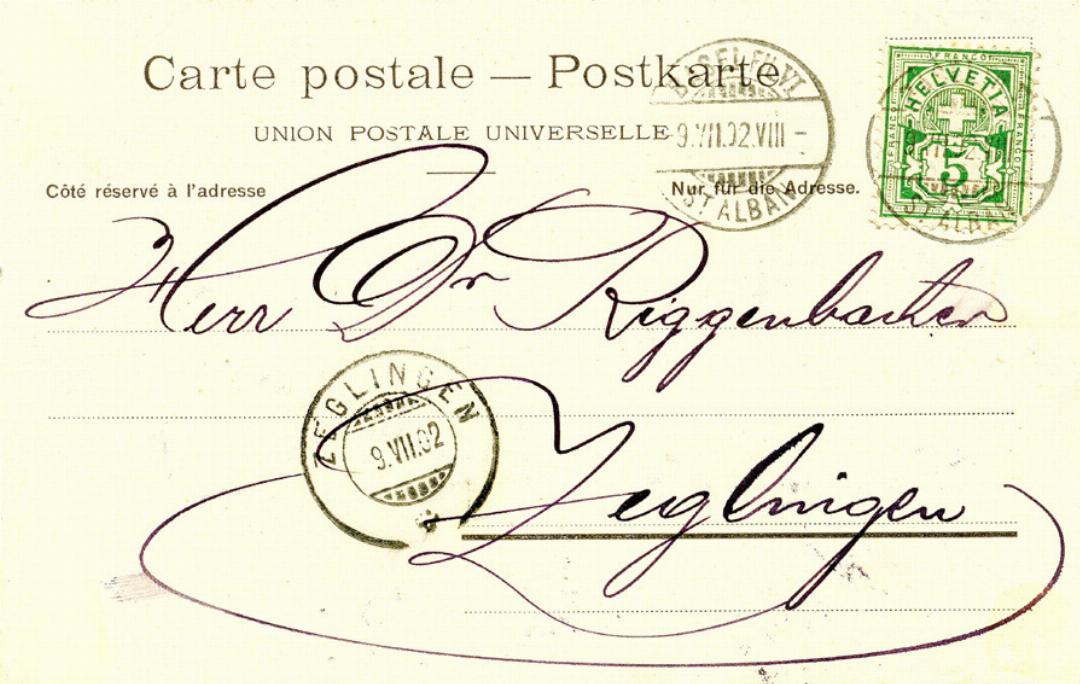 Carte postale — Postkarte
UNION POSTALE UNIVERSELLE
BASEL FIL. VI
9.VII.02.VIII –
ST ALBAN
FRANCO
FRANCO
FRANCO
HELVETIA
5
ST ALBAN
Côté réservé à l'adresse
Nur für die Adresse.
Herr Dr Riggenbacher
ZEGLINGEN
9.VII.02
Zeglingen